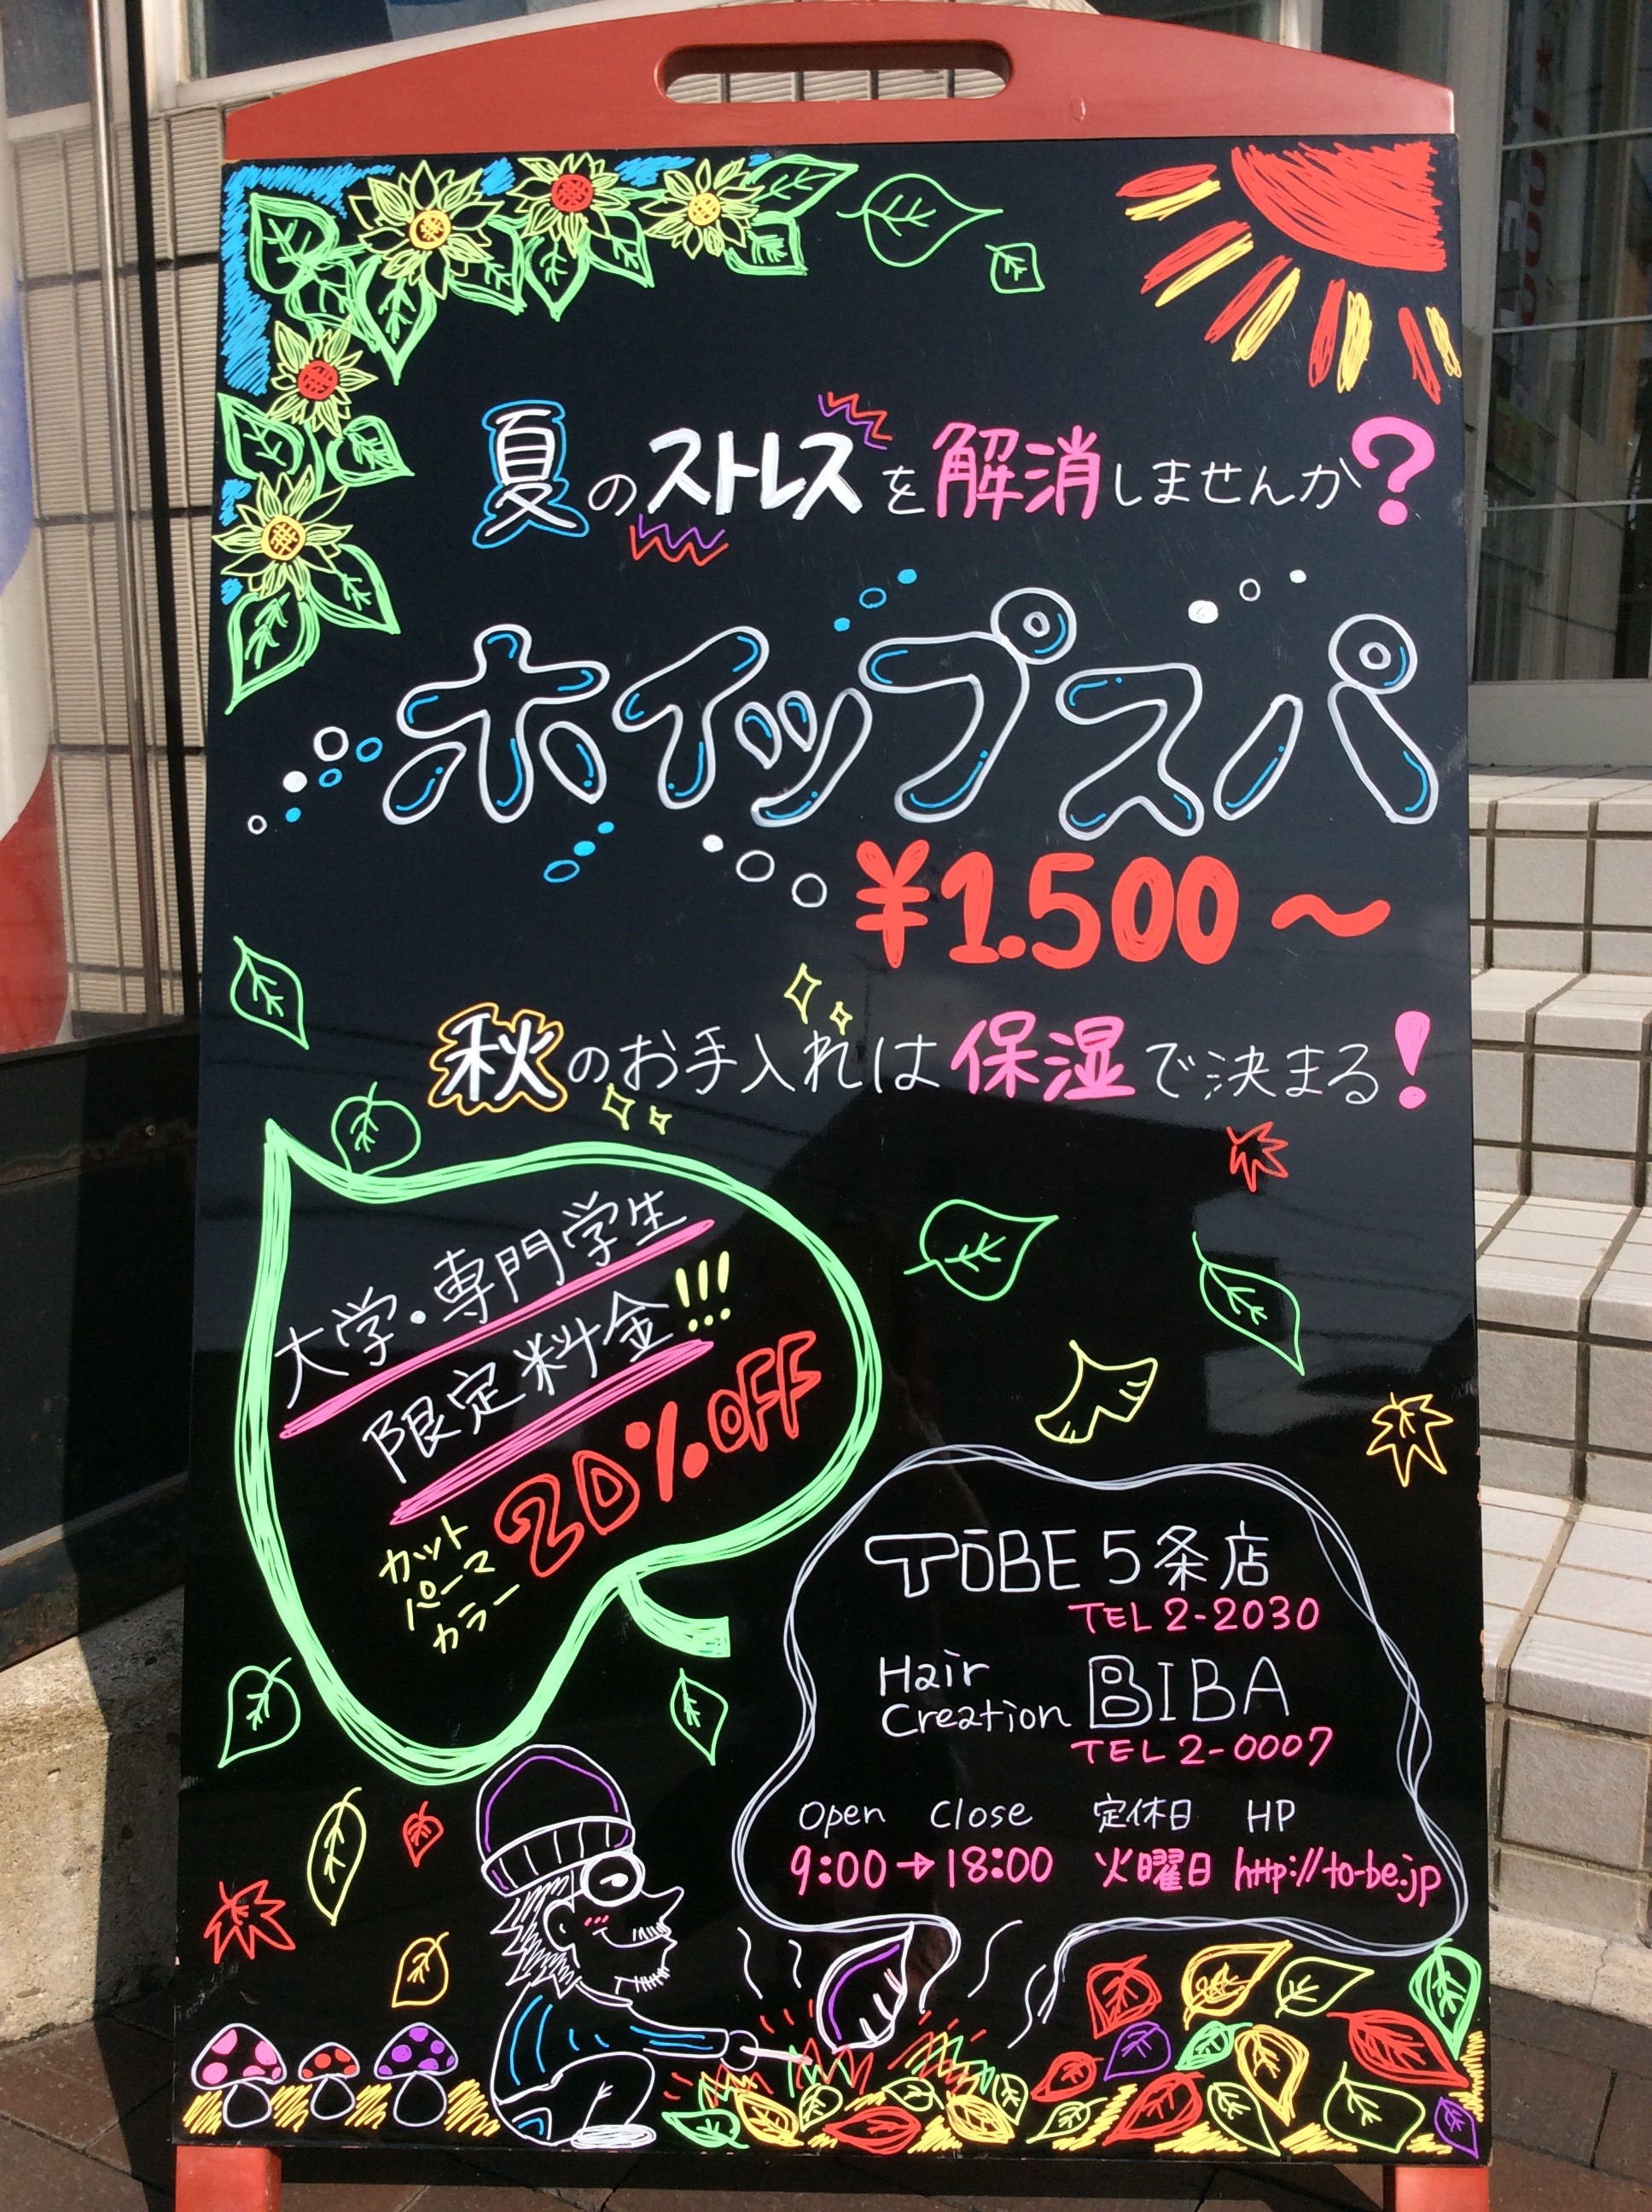 夏のストレスを解消しませんか?
ホイップスパ
¥1.500～
秋のお手入れは保湿で決まる!
大学・専門学生
限定料金!!!
カット
パーマ
カラー
20%OFF
TōBE 5条店
TEL 2-2030
Hair
Creation BIBA
TEL 2-0007
Open Close 定休日 HP
9:00→18:00 火曜日 http://to-be.jp